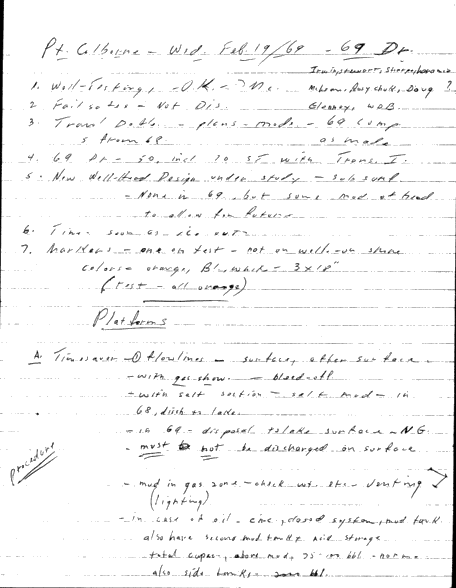 Pt. Colborne - Wed. Feb. 19/69 - 69 Dr.
1. Well-Testing, - O.K. -
2 Failsafes - Not Dis. Glenney, WDB.
3 - plans - made - 69 Comp
5 from 68 as made
4. 69 Dr - 50, incl 20 ST with Trans. I.
5. New Well-Head Design under study - subsurf
- None in 69, but some mod at head
to allow for future
6. Time soon as ice out
7. Markers - one on test - not on well - on shore
colors = orange, Bl, white - 3 x 18"
(test - all orange)
Platforms
A. Timesaver - ① flowlines - surface, after surface -
- with gas show. - bleed-off
- with salt section - salt mud - in
68, disch to lake.
- in 69 - disposal to lake surface - N.G.
- must not be discharged on surface
procedure
- mud in gas zone - check wt. etc. - venting
(lighting)
- in case of oil - circ, closed system, mud tank
also have second mud tank & acid storage
total capac, above mud, 75 - bbl -
also side tanks - bbl.